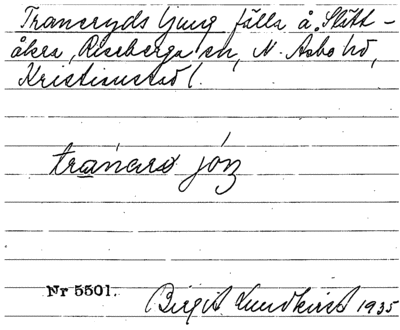 Tranaryds ljung fälla å Slätt-
åkra, Riseberga sn, N. Åsbo hd,
Kristianstad l.
tranarɷ jóŋ
Nr 5501. Birgit Lundkvist 1935